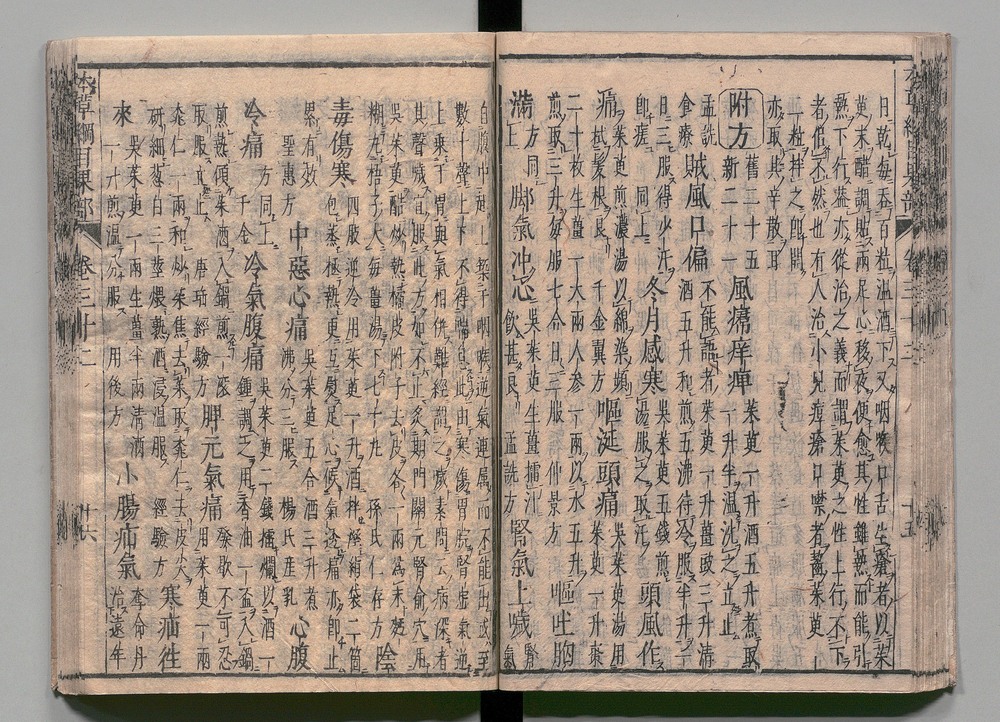 日乾每吞百粒温酒下又咽喉口舌生瘡者以茱
萸末醋調貼兩足心移夜便愈其性雖熱而能引
熱下行蓋亦從治之義而謂茱萸之性上行不下
者似不然也有人治小兒痘瘡口噤者囓茱萸
一二粒抹之即開
亦取其辛散耳
附方 舊二十五 新二十一 風㾻痒痺 茱萸一升酒五升煮取一升半温洗之立止
孟詵食療 賊風口偏 不能語者茱萸一升薑豉三升清酒五升和煎五沸待冷服半升一
日三服得少汗即瘥 同上 冬月感寒 吳茱萸五錢煎湯服之取汗 頭風作
痛 茱萸煎濃湯以綿染頻拭髮根良 千金翼方 嘔涎頭痛 吳茱萸湯用茱萸一升棗
二十枚生薑一大兩人參一兩以水五升煎取三升每服七合日三服 仲景方 嘔吐胸
滿 方同上 脚氣冲心 吳茱萸生薑擂汁飲甚良 孟詵方 腎氣上噦 腎氣
自腹中起上築于咽喉逆氣連屬而不能出或至
數十聲上下不得喘息此由寒傷胃脘腎虛氣逆
上乘于胃與氣相併難經謂之噦素問云病深者
其聲噦宜服此方如不止灸期門關元腎俞穴用
吳茱萸醋炒熱橘皮附子去皮各一兩爲末麪
糊丸梧子大每薑湯下七十丸 孫氏仁存方 陰
毒傷寒 四肢逆冷用茱萸一升酒拌濕絹袋二箇包蒸極熱更互熨足心候氣透痛亦即止
累有效 聖惠方 中惡心痛 吳茱萸五合酒三升煮沸分三服 楊氏産乳 心腹
冷痛 方同上 千金 冷氣腹痛 吳茱萸二錢擂爛以酒一鍾調之用香油一盃入鍋
煎熱傾茱酒入鍋煎一滚取服立止 唐瑶經驗方 脾元氣痛 發歇不可忍用茱萸一兩
桃仁一兩和炒茱焦去茱取桃仁去皮尖
研細葱白三莖煨熟酒浸温服 經驗方 寒疝往
來 吳茱萸一兩生薑半兩清酒一升煎温分服 用後方 小腸疝氣 治遠年
本草綱目果部 卷三十二 十六